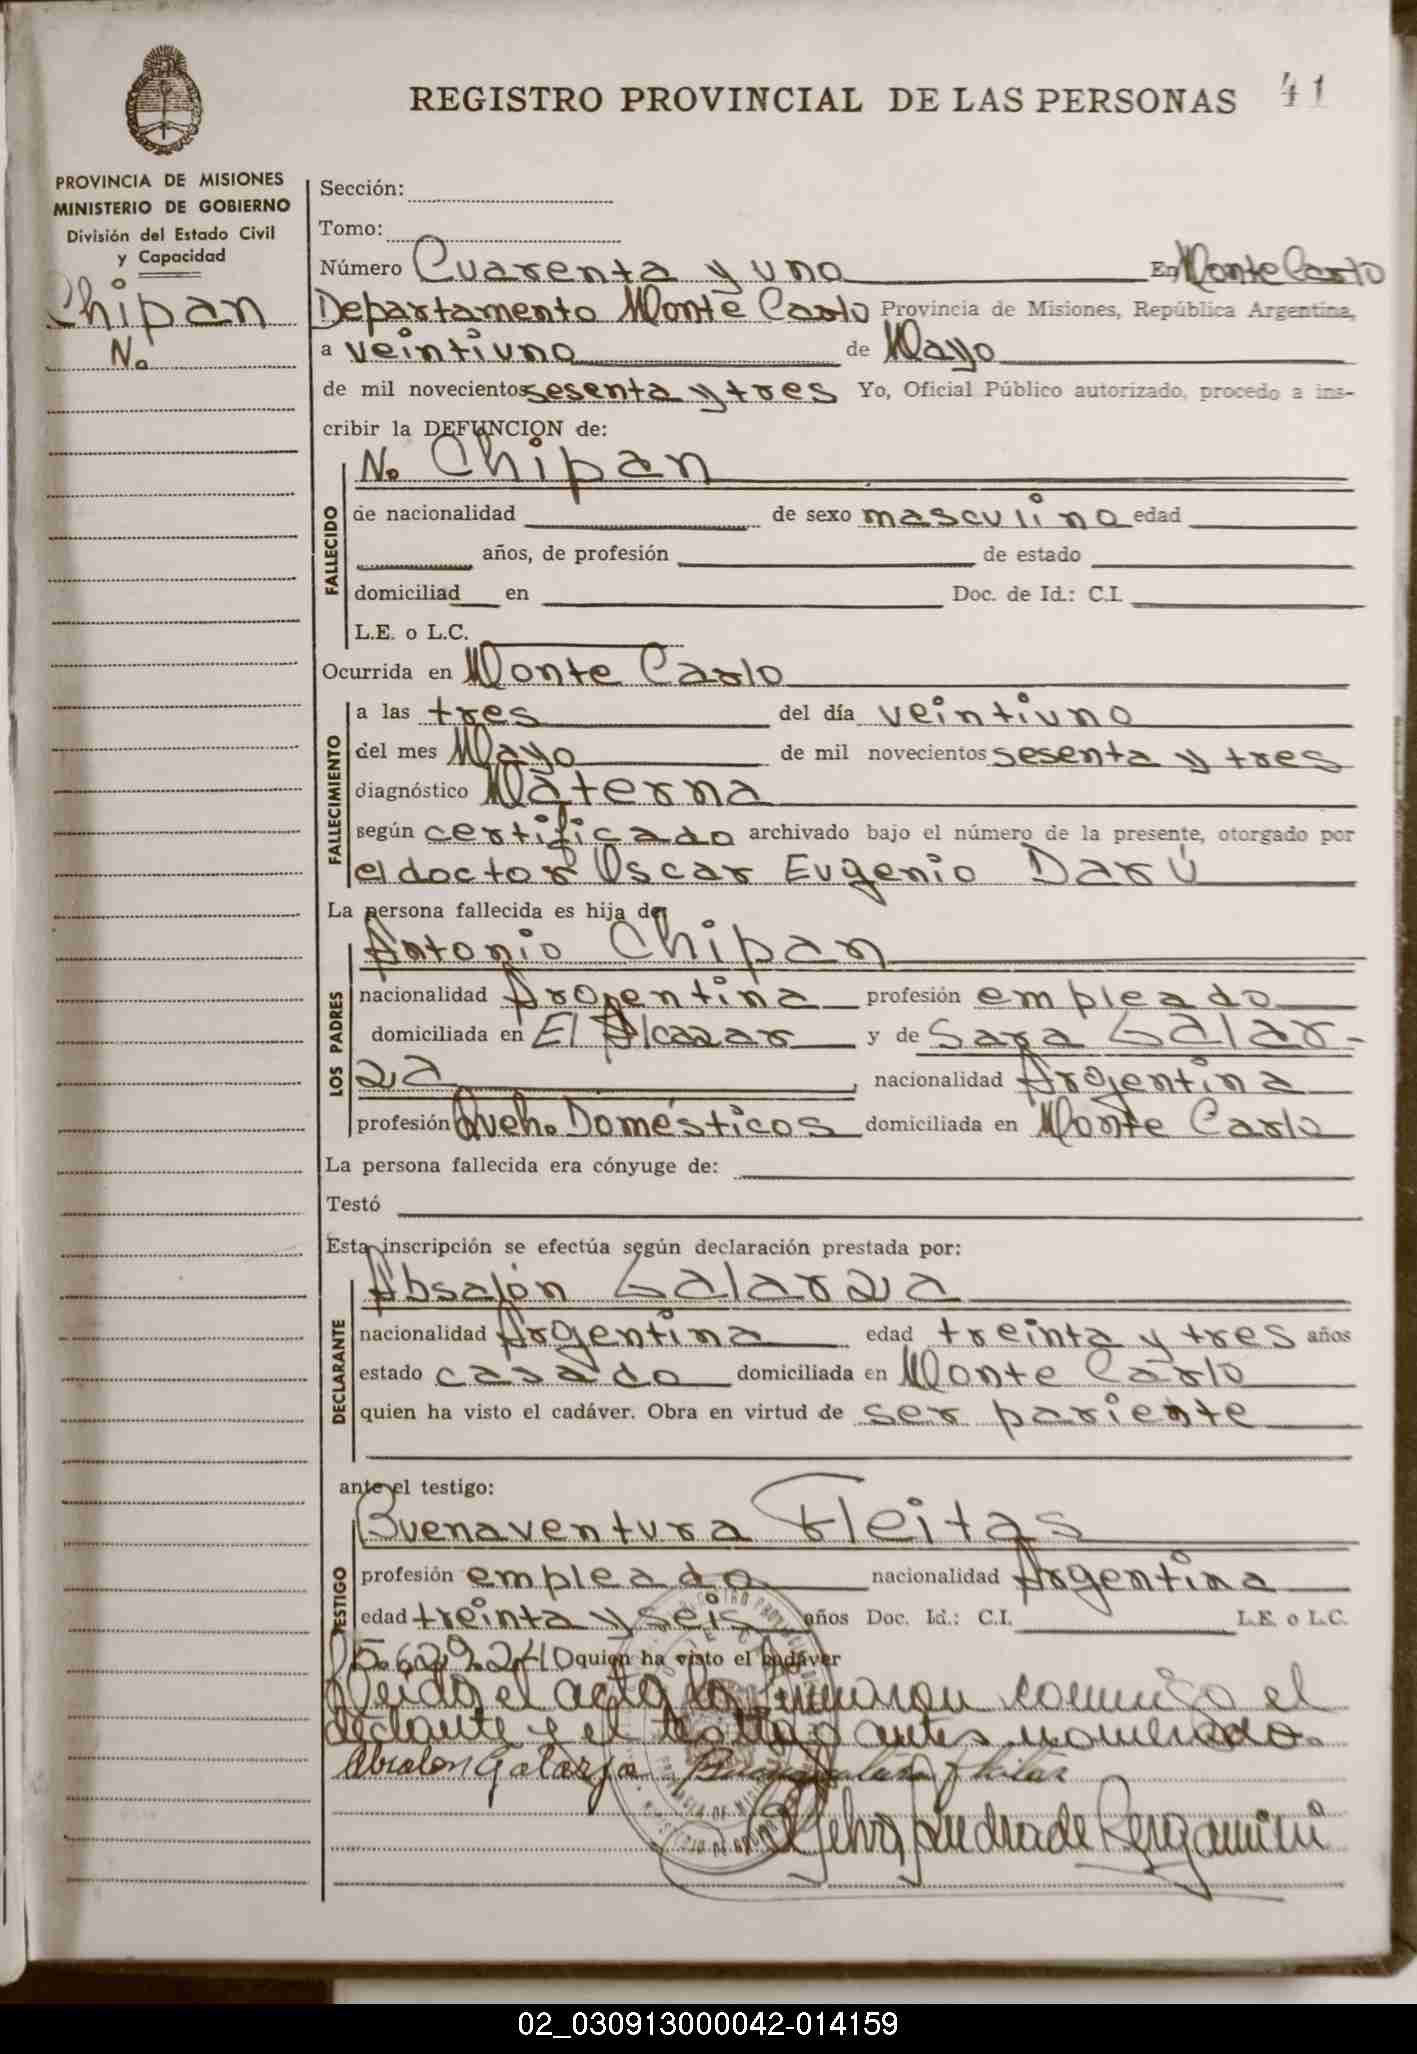 REGISTRO PROVINCIAL DE LAS PERSONAS 41
PROVINCIA DE MISIONES
MINISTERIO DE GOBIERNO
División del Estado Civil
y Capacidad
Chipan
No
Sección:
Tomo:
Número Cuarenta y uno En Monte Carlo
Departamento Monte Carlo Provincia de Misiones, República Argentina,
a veintiuno de Mayo
de mil novecientos sesenta y tres Yo, Oficial Público autorizado, procedo a ins-
cribir la DEFUNCION de:
No Chipan
FALLECIDO
de nacionalidad de sexo masculino edad
años, de profesión de estado
domiciliad en Doc. de Id.: C.I.
L.E. o L.C.
Ocurrida en Monte Carlo
FALLECIMIENTO
a las tres del día veintiuno
del mes Mayo de mil novecientos sesenta y tres
diagnóstico Materna
según certificado archivado bajo el número de la presente, otorgado por
el doctor Oscar Eugenio Darú
La persona fallecida es hija de
LOS PADRES
Antonio Chipan
nacionalidad Argentina profesión empleado
domiciliada en El Alcazar y de Sara Galar-
za nacionalidad Argentina
profesión Queh. Domésticos domiciliada en Monte Carlo
La persona fallecida era cónyuge de:
Testó
Esta inscripción se efectúa según declaración prestada por:
DECLARANTE
Absalón Galarza
nacionalidad Argentina edad treinta y tres años
estado casado domiciliada en Monte Carlo
quien ha visto el cadáver. Obra en virtud de ser pariente
ante el testigo:
TESTIGO
Buenaventura Fleitas
profesión empleado nacionalidad Argentina
edad treinta y seis años Doc. Id.: C.I. L.E. o L.C.
5.629.240 quien ha visto el cadáver
Leída el acta la firmaron conmigo el
declante y el testigo antes nombrado.
Absalon Galarza Buenaventura Fleitas
Andrade Bergamini
02_030913000042-014159